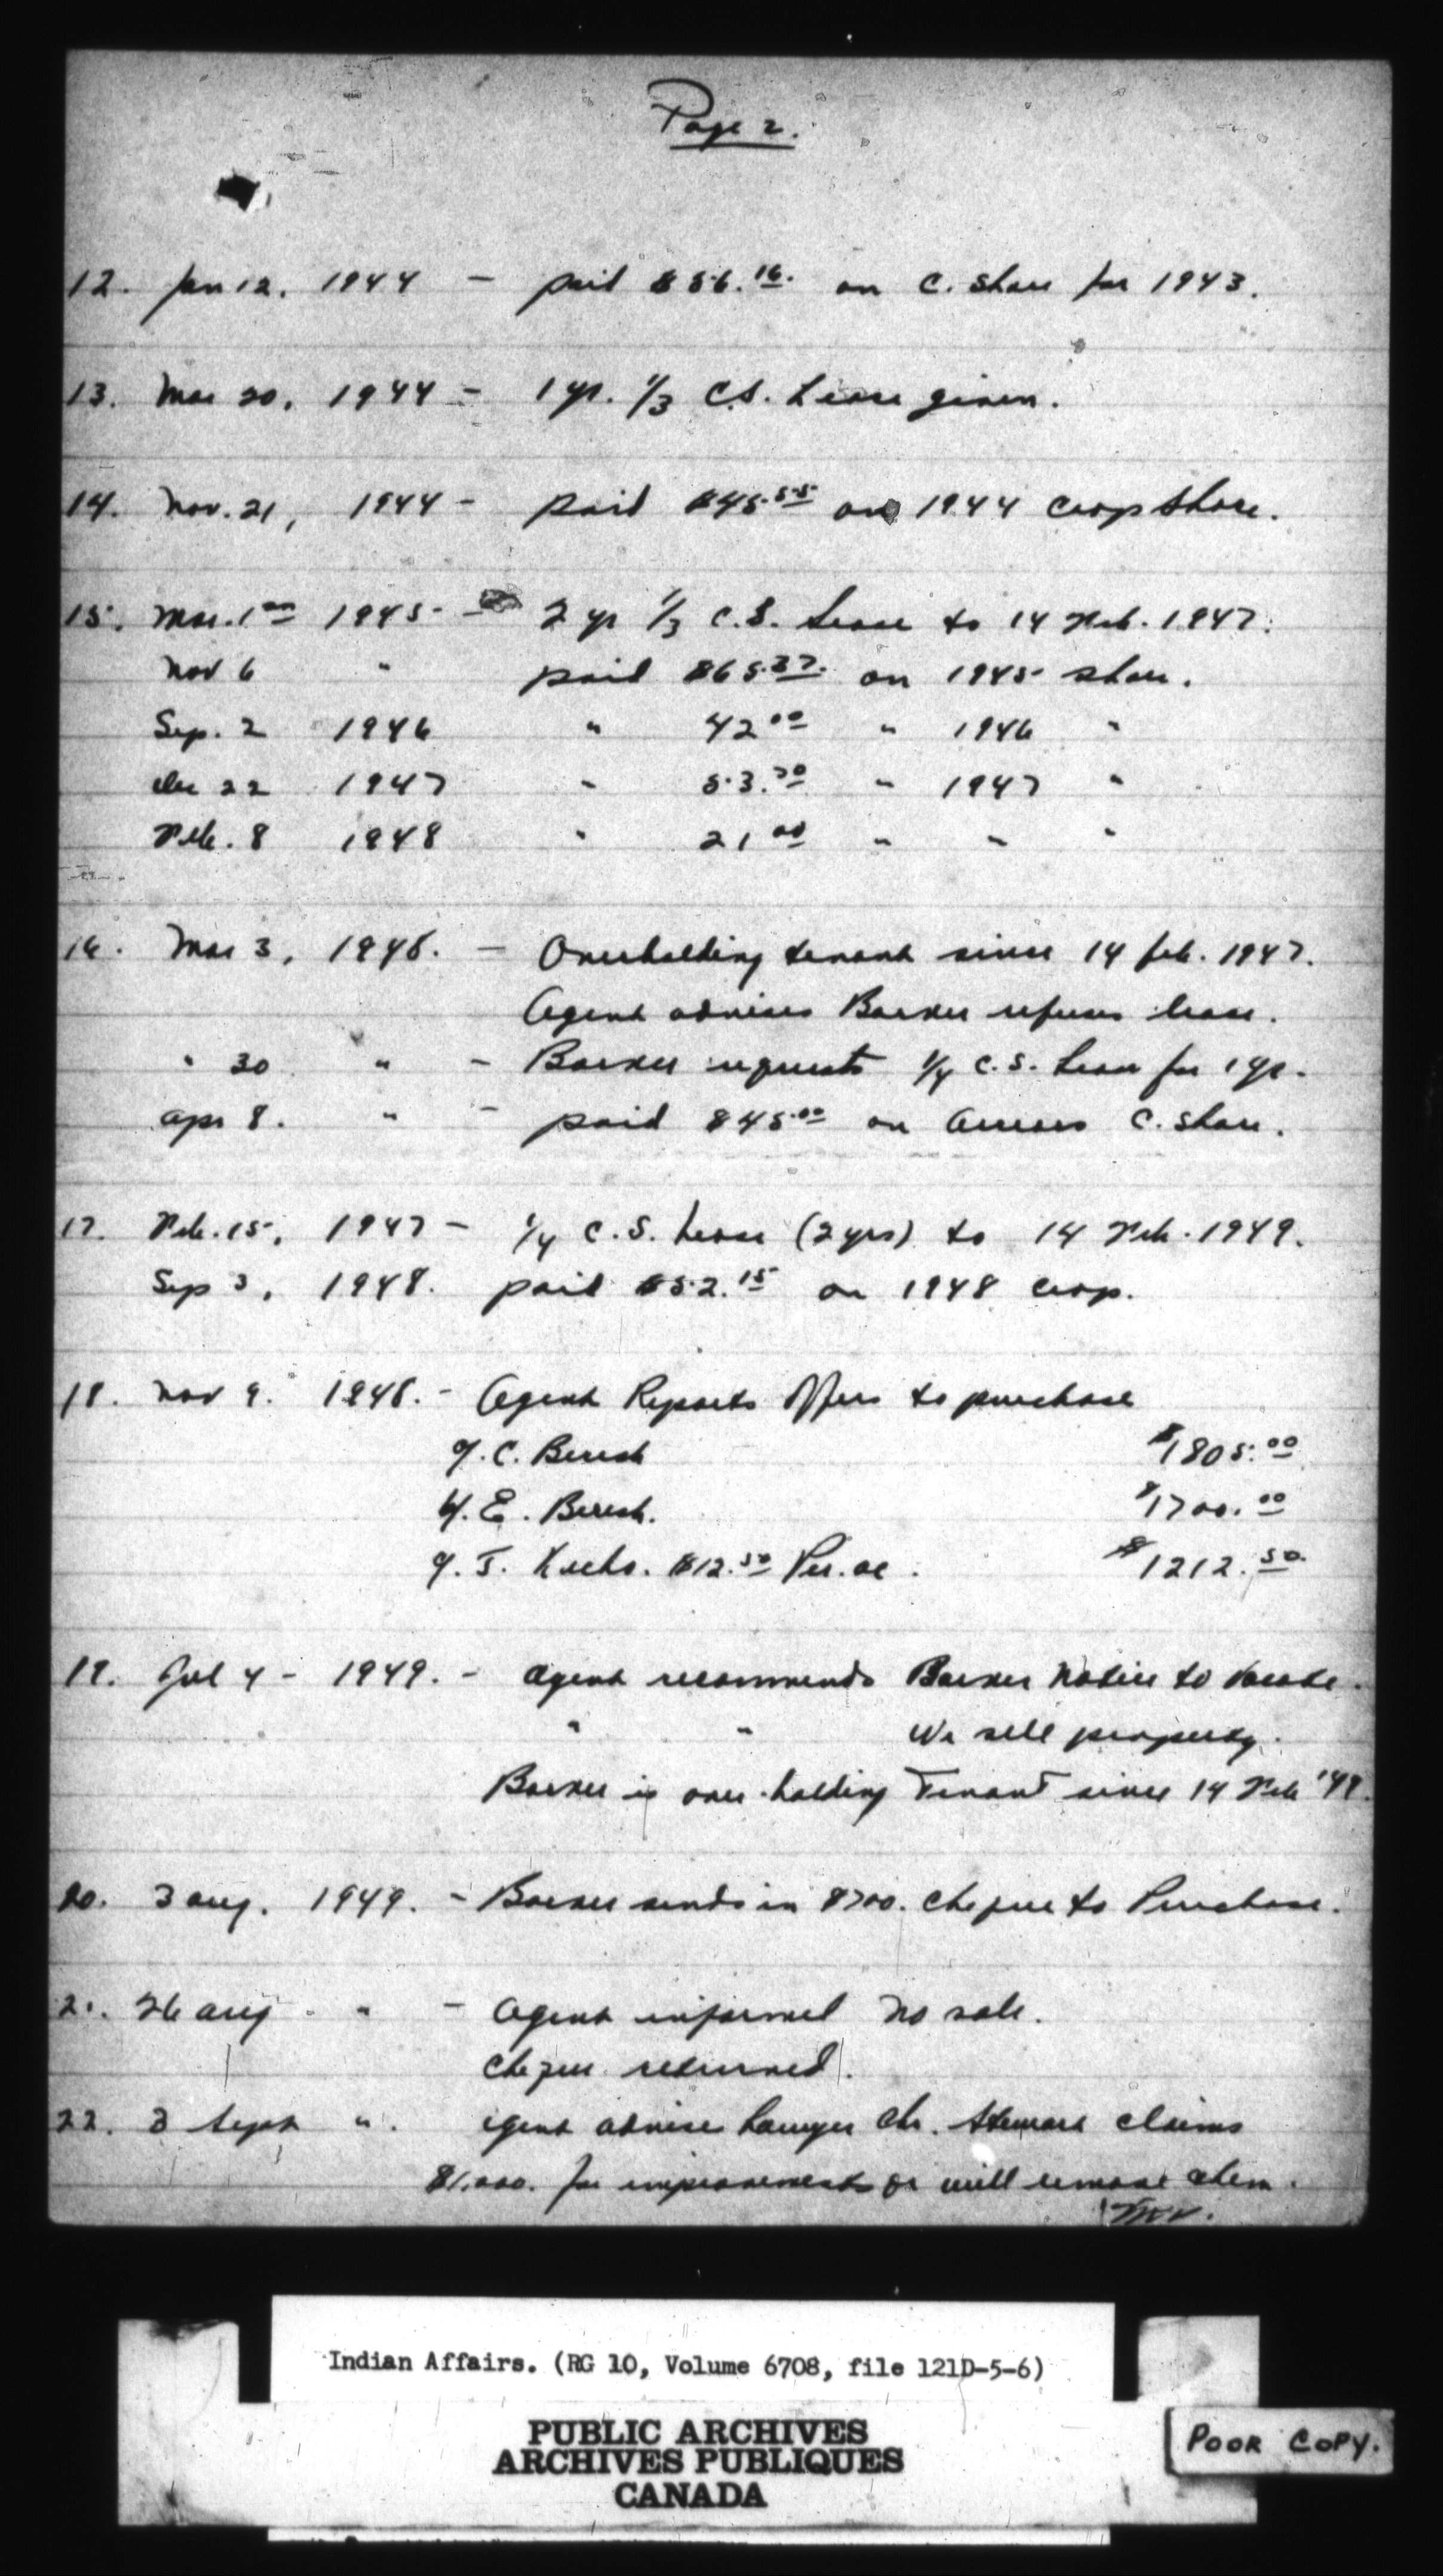 Page 2.
12. Jan 12, 1944 - paid $56.16 on C. Share for 1943.
13. Mar 20, 1944 - 1 yr. 1/3 C.S. Lease given.
14. Nov. 21, 1944 - paid $45.55 on 1944 crop share.
15. Mar. 1 1945 - 2 yr 1/3 C.S. Lease to 14 Feb. 1947.
Nov 6 " paid $65.37 on 1945 share.
Sep. 2 1946 " 42.00 " 1946 "
Dec 22 1947 " 53.70 " 1947 "
Feb. 8 1948 " 21.00 " " "
16. Mar 3, 1948. - Overholding tenant since 14 Feb. 1947.
Agent advises Barker refuses lease.
" 30 " - Barker requests 1/4 C.S. Lease for 1 yr.
Apr 8. " - paid $45.00 on arrears C. Share.
17. Feb. 15, 1947 - 1/4 C.S. Lease (2 yrs) to 14 Feb. 1949.
Sep 3, 1948. paid $52.15 on 1948 crop.
18. Nov 9. 1948. - Agent Reports Offers to purchase
J. C. Beresh $1805.00
W. E. Beresh. $1700.00
J. J. $12.50 Per. ac. $1212.50
19. Jul 4 - 1949. - Agent recommends Barker Notice to Vacate.
" " We sell property.
Barker is over-holding Tenant since 14 Feb '49.
20. 3 Aug. 1949. - Barker sends in $700. Cheque to Purchase.
21. 26 Aug. " - Agent informed No sale.
Cheque returned.
22. 3 Sept ". Agent advise Lawyer Stewart claims
$1,000. for improvements or will remove them.
Indian Affairs. (RG 10, Volume 6708, file 121D-5-6)
PUBLIC ARCHIVES
ARCHIVES PUBLIQUES
CANADA
POOR COPY.